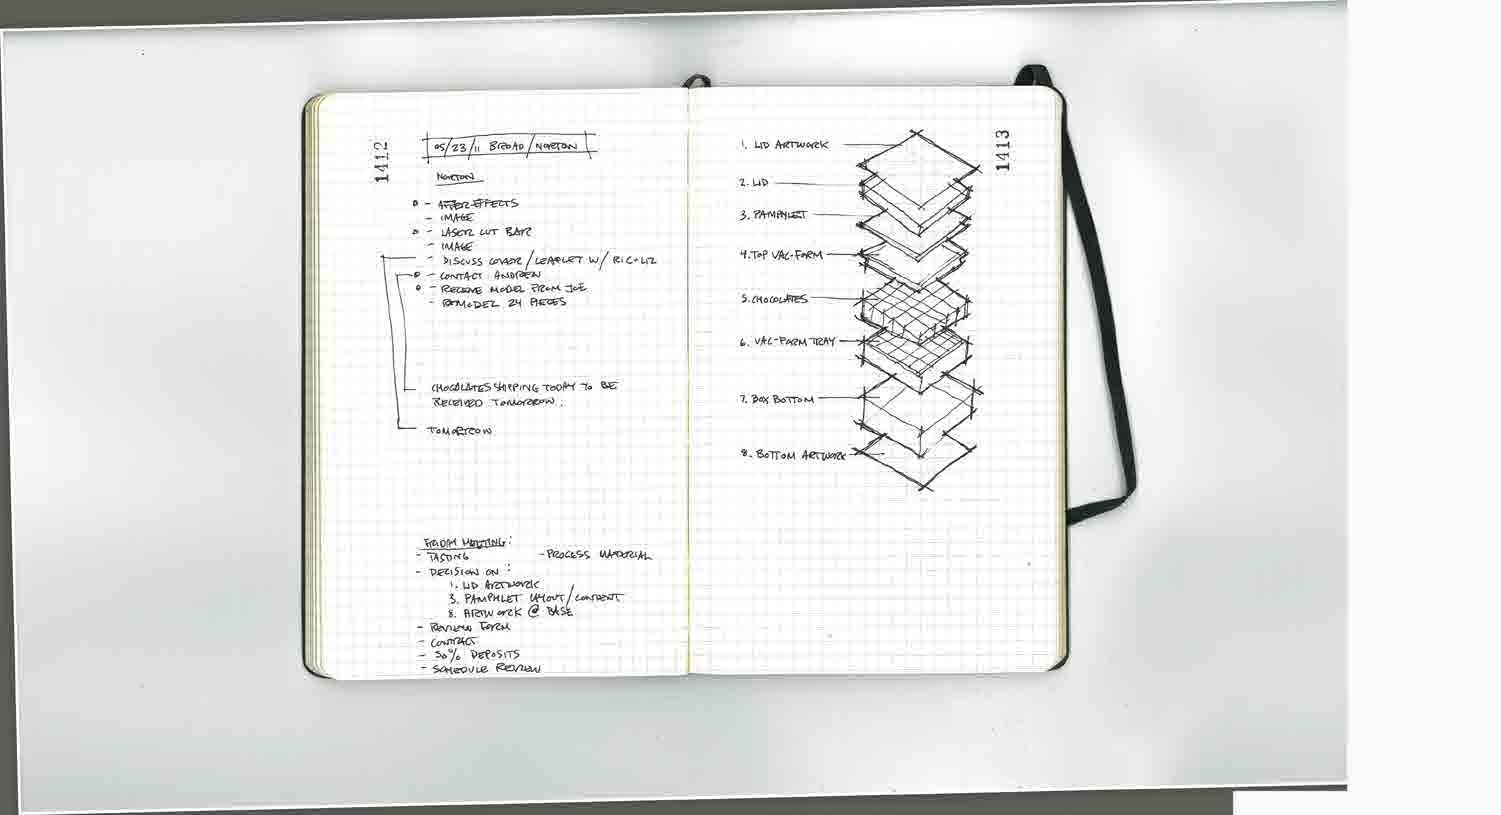 1412
05/23/11 BROAD/NORTON
NORTON
- AFTER EFFECTS
- IMAGE
- LASER CUT BAR
- IMAGE
- DISCUSS COVER/LEAFLET W/ RIC+LIZ
- CONTACT ANDREW
- RECEIVE MODEL FROM JOE
- REMODEL 24 PIECES
CHOCOLATES SHIPPING TODAY TO BE
RECEIVED TOMORROW.
TOMORROW
FRIDAY MEETING:
- TASTING - PROCESS MATERIAL
- DECISION ON:
1. LID ARTWORK
3. PAMPHLET LAYOUT/CONTENT
8. ARTWORK @ BASE
- REVIEW FORM
- CONTRACT
- 50% DEPOSITS
- SCHEDULE REVIEW
1413
1. LID ARTWORK
2. LID
3. PAMPHLET
4. TOP VAC-FORM
5. CHOCOLATES
6. VAC-FORM TRAY
7. BOX BOTTOM
8. BOTTOM ARTWORK